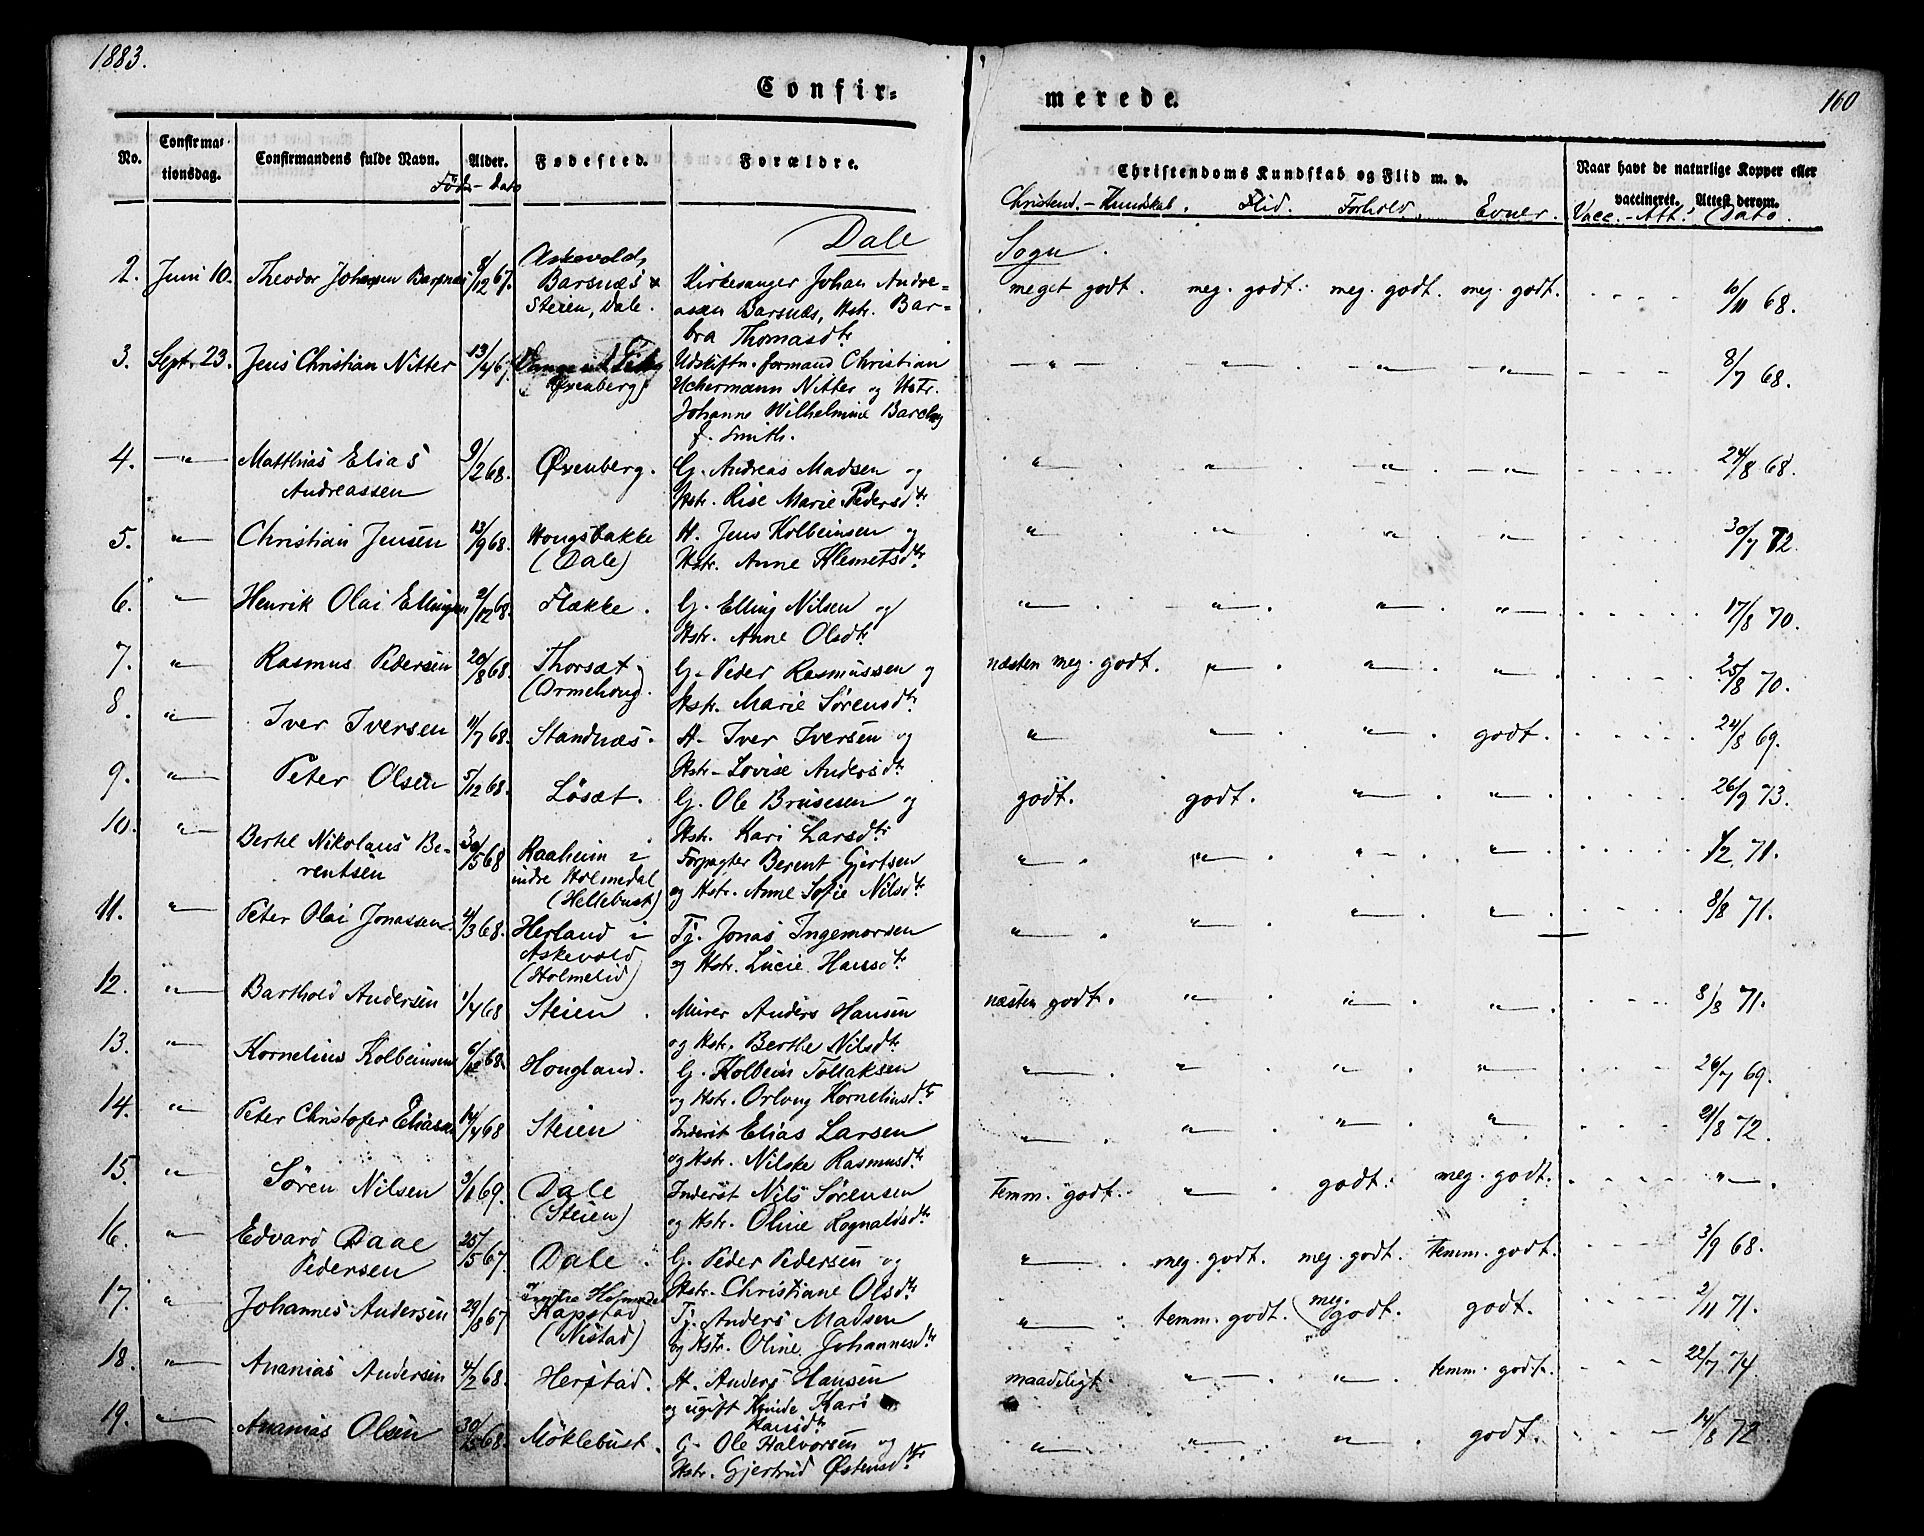 1883.
160
Confir-
merede.
No.
Confirma-
tionsdag.
Confirmandens fulde Navn.
Alder.
Føde-Dato
Fødested.
Forældre.
Christendoms Kundskab og Flid m. v.
Naar havt de naturlige Kopper eller
vaccineret. Attest derom.
Christend.-Kundskab. Flid. Forhold. Evner. Vacc.-Att. Dato.
Dale Sogn.
2. Juni 10. Theodor Johansen Barsnæs 8/12 67. Askevold, Kirkesanger Johan Andre- meget godt. meg. godt. meg. godt. meg. godt. 10/11 68.
Barsnæs
Steien, Dale. assen Barsnæs, Hstr. Bar-
bra Thomasdtr
3. Sept. 23. Jens Christian Nitter 13/4 67. Udskiftn. formand Christian -"- " " " 8/7 68.
(Øxenberg) Uchermann Nitter og Hstr.
Johanne Wilhelmine
f. Smith.
4. -"- Matthias Elias 9/2 68. Øxenberg. G. Andreas Madsen og " " " " 24/8 68.
Andreassen Hstr. Rise Marie Pedersdtr
5. " Christian Jensen 13/9 68. Hougsbakke H. Jens Kolbeinsen og " " " " 30/7 72.
(Dale) Hstr. Anne Klemetsdtr
6. " Henrik Olai Ellingsen 2/12 68. Flække. G. Elling Nilsen og " " " " 17/8 70.
Hstr. Anne Olsdtr
7. " Rasmus Pedersen 20/8 68. Thorsæt G. Peder Rasmussen og næsten meg. godt. " " " 25/8 70.
(Ormehoug). Hstr. Marie Sørensdtr
8. " Iver Iversen 11/7 68. Standnæs. H. Iver Iversen og " " " godt. 24/8 69.
Hstr. Lovise Andersdtr
9. " Peter Olsen 5/12 68. Løsæt. G. Ole Brusesen og godt. godt. " " 26/9 73.
Hstr. Kari Larsdtr
10. " Bertel Nikolaus Be- 30/5 68 Raaheim i Forpagter Berent Gjertsen " " " " 1/2 71.
rentsen indre Holmedal og Hstr. Anne Sofie Nilsdtr
(Hellebust)
11. " Peter Olai Jonassen 4/3 68. Herland i Tj. Jonas Ingemorsen " " " " 8/8 71.
Askevold og Hstr. Lucie Hansdtr
(Holmelid)
12. " Barthold Andersen 1/4 68 Steien. Murer Anders Hansen næsten godt. " " " 8/8 71.
og Hstr. Berthe Nilsdtr
13. " Kornelius Kolbeinsen 6/12 68. Hougland. G. Kolbein Tollaksen " " " " 26/7 69.
og Hstr. Orloug Korneliusdtr
14. " Peter Christofer Eliassen 14/4 68 Steien Inderst Elias Larsen " " " " 21/8 72.
og Hstr. Nilske Rasmusdtr
15. " Søren Nilsen 3/1 69. Dale Inderst Nils Sørensen Temm. godt. " godt. meg. godt. "
(Steien) og Hstr. Oline Rognaldsdtr
16. " Edvard Daae 25/5 67. Dale. G. Peder Pedersen og " meg. godt. meg. godt. temm. godt. 3/9 68.
Pedersen Hstr. Christiane Olsdtr
17. " Johannes Andersen 29/8 67 Kapstad Tj. Anders Madsen " temm. godt. (meg. godt. godt. 2/11 71.
(Nistad) og Hstr. Oline Johannesdtr
18. " Ananias Andersen 4/2 68. Herstad. H. Anders Hansen maadeligt " " temm. godt. 22/7 74.
og ugift Kvinde Kari
Hansdtr
19. " Ananias Olsen 68. Møklebust. G. Ole Halvorsen og " " " godt. 14/8 72.
Hstr. Gjertrud Østensdtr